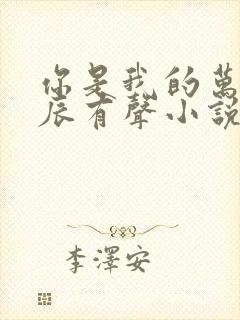 你是我的萬
辰有聲小說
李澤安